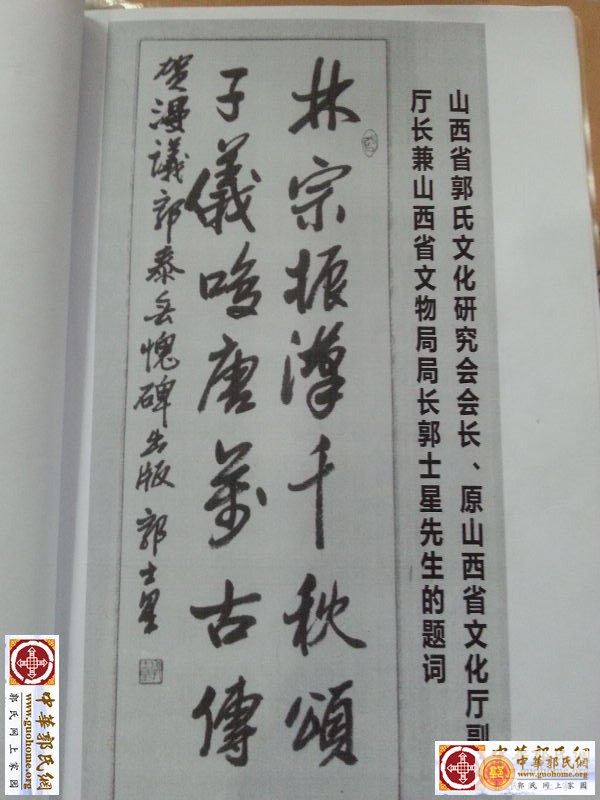 山西省郭氏文化研究会会长、原山西省文化厅副
厅长兼山西省文物局局长郭士星先生的题词
林宗振漢千秋頌
子儀唐萬古傳
贺漫議郭泰無愧碑出版 郭士星
中華郭氏網
www.guohome.org
郭氏网上家园
中華郭氏網
www.guohome.org
郭氏网上家园